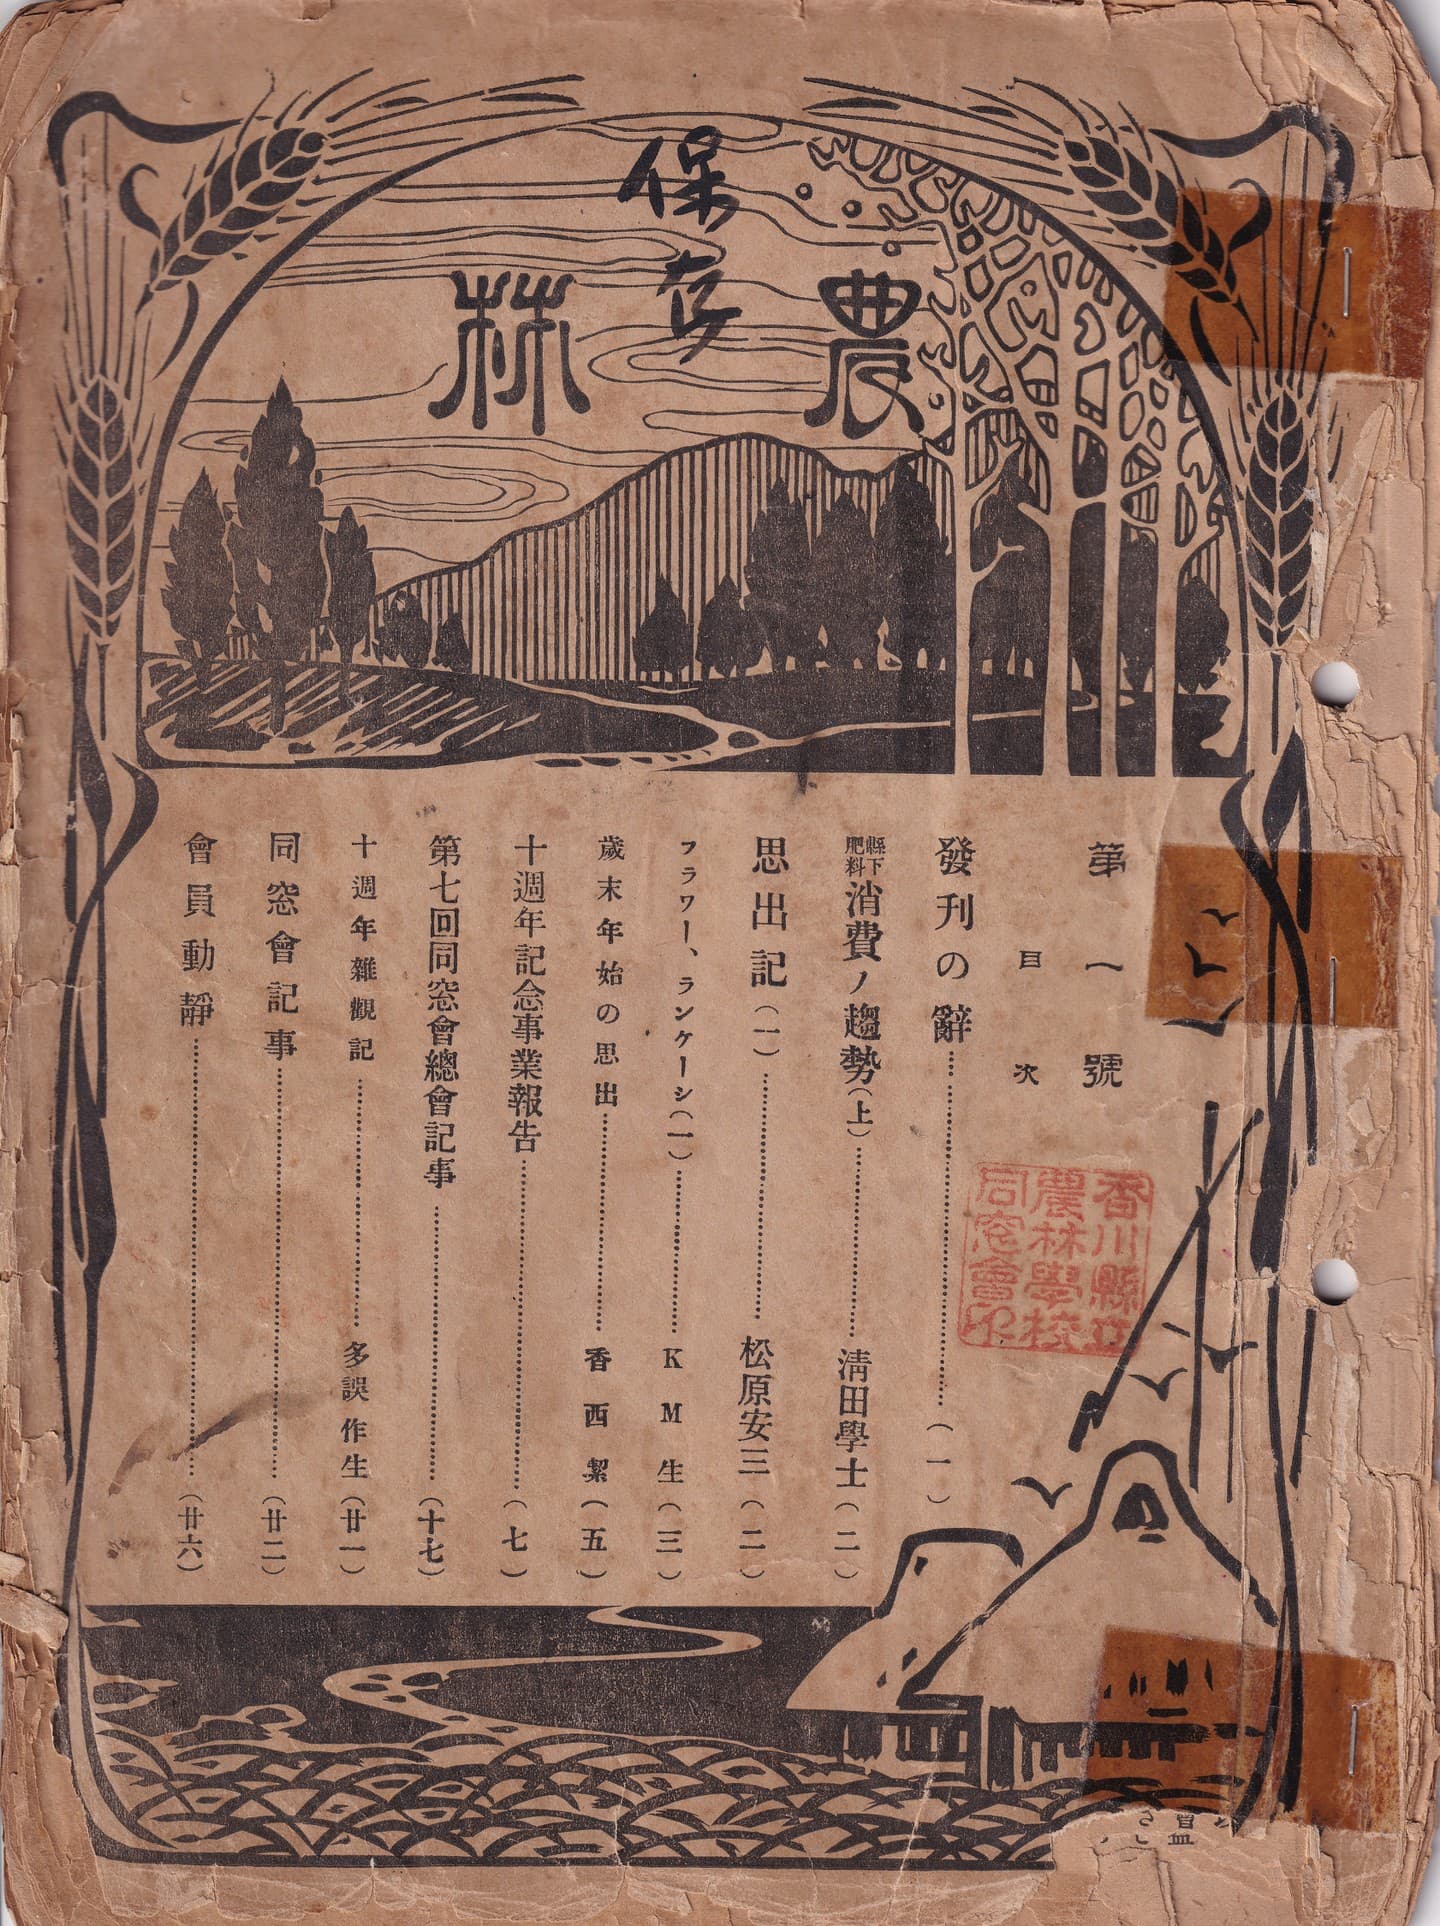 保存
農林
第一號
目次
發刊の辭……………(一)
縣下肥料消費ノ趨勢(上)……………淸田學士(二)
思出記(一)……………松原安三(二)
フラワー、ランケーシ(一)……………KM生(三)
歲末年始の思出……………香西絜(五)
十週年記念事業報吿……………(七)
第七回同窓會總會記事……………(十七)
十週年雜觀記……………多誤作生(廿一)
同窓會記事……………(廿二)
會員動靜……………(廿六)
香川縣立
農林學校
同窓會